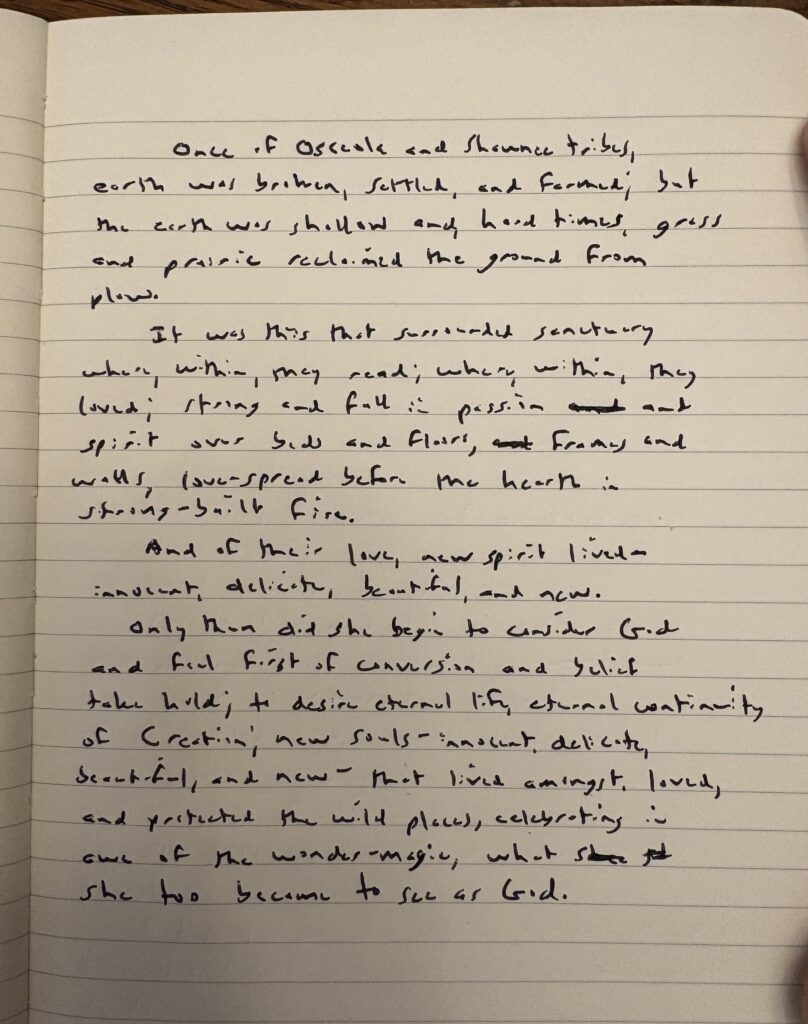 Once of Osceola and Shawnee tribes,
earth was broken, settled, and farmed; but
the earth was shallow and, hard times, grass
and prairie reclaimed the ground from
plow.
It was this that surrounded sanctuary
where, within, they read; where, within, they
loved; strong and full in passion and and
spirit over beds and floors, and frames and
walls, love-spread before the hearth in
strong-built fire.
And of their love, new spirit lived-
innocent, delicate, beautiful, and new.
Only then did she begin to consider God
and feel first of conversion and belief
take hold; to desire eternal life, eternal continuity
of Creation; new souls-innocent, delicate,
beautiful, and new- that lived amongst, loved,
and protected the wild places, celebrating in
awe of the wonder-magic, what she
she too became to see as God.